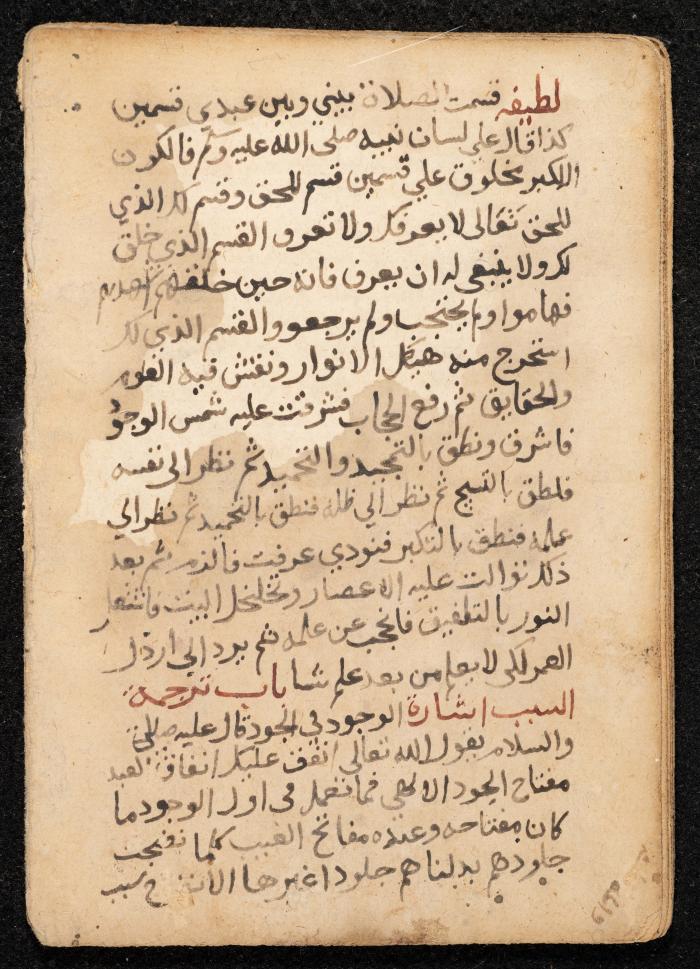 لطيفه قسمت الصلاة بيني وبين عبدي قسمين
كذا قال علي لسان نبيه صلى الله عليه وسلم فالكون
الاكبر مخلوق علي قسمين قسم للحق وقسم لك الذي
للحق تعالى لا يعرفك ولا تعرف القسم الذي خلق
لك ولا ينبغي له ان يعرف فانه حين خلقهم
فهاموا ولم يحتجب ولم يرجعوا والقسم الذي لك
استخرج منه هيكل الانوار ونقش فيه العلوم
والحقايق ثم رفع الحجاب فشرقت عليه شمس الوجود
فاشرق ونطق بالتمجيد والتحميد ثم نظر الى نفسه
فنطق بالتسبيح ثم نظر الي ظله فنطق بالتحميد ثم نظر الي
علمه فنطق بالتكبير فنودي عرفت فالزم ثم بعد
ذلك توالت عليه الاعصار وتخلخل البيت فاشتعل
النور بالتلفيق فانحجب عن علمه ثم يرد الي ارذل
العمر لكي لا يعلم من بعد علم شيا باب ترجمة
السبب اشارة الوجود في الجود قال عليه الصلاة
والسلام يقول الله تعالى انفق عليك انفاق العبد
مفتاح الجود الالهي فما تعمل في اول الوجود ما
كان مفتاحه وعنده مفاتح الغيب كلما نضجت
جلودهم بدلناهم جلودا غيرها الآية